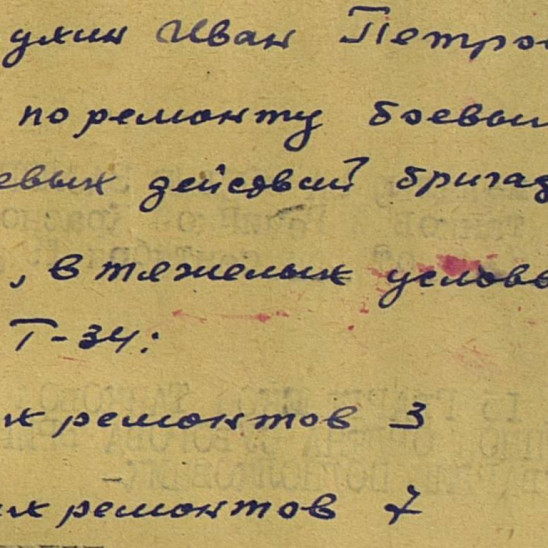 ухин Иван Петро
по ремонту боевы
евых действий бригад
, в тяжелых услов
Т-34:
х ремонтов 3
их ремонтов 7